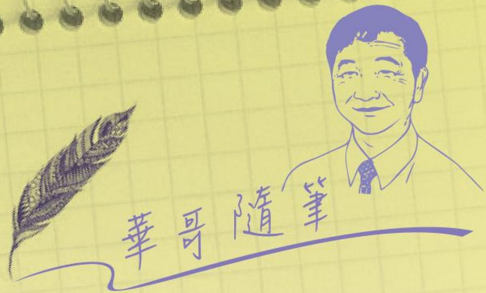 華哥隨筆